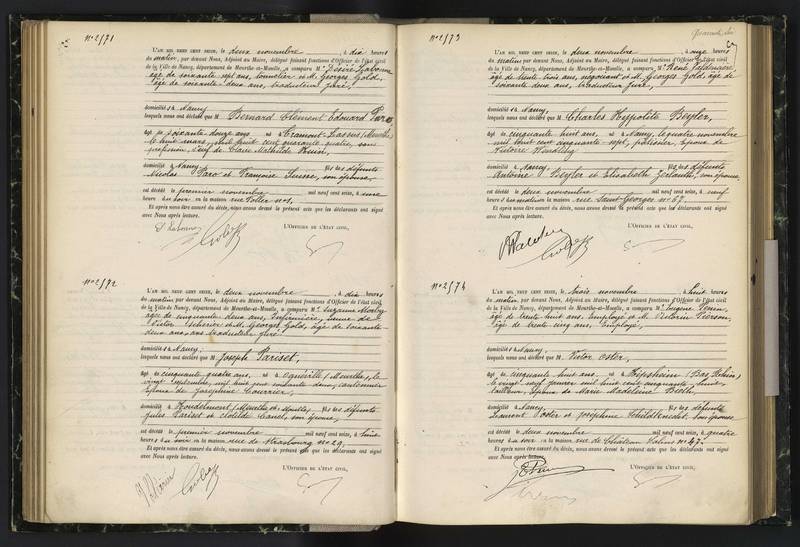 N° 2571
L'AN MIL NEUF CENT SEIZE, le deux novembre, à dix heures
du matin, par devant Nous, Adjoint au Maire, délégué faisant fonctions d'Officier de l'état civil
de la Ville de Nancy, département de Meurthe-et-Moselle, a comparu M. Désiré
âgé de soixante sept ans, tonnelier et M. Georges Gold,
âgé de soixante deux ans, traducteur juré,
domiciliés à Nancy
lesquels nous ont déclaré que M. Bernard Clément Edouard
âgé de soixante douze ans, né à (Meurthe)
le huit mars, mil huit cent quarante quatre, sans
profession, veuf de Claire Mathilde
domicilié à Nancy, fils des défunts
Nicolas et Françoise, son épouse,
est décédé le premier novembre mil neuf cent seize, à une
heure du soir, en la maison rue n° 1,
Et après nous être assuré du décès, nous avons dressé le présent acte que les déclarants ont signé
avec Nous après lecture.
L'OFFICIER DE L'ÉTAT CIVIL,
N° 2572
L'AN MIL NEUF CENT SEIZE, le deux novembre, à dix heures
du matin, par devant Nous, Adjoint au Maire, délégué faisant fonctions d'Officier de l'état civil
de la Ville de Nancy, département de Meurthe-et-Moselle, a comparu M. Suzanne
âgée de cinquante deux ans, infirmière,
Victor et M. Georges Gold, âgé de soixante
deux ans, traducteur juré,
domiciliés à Nancy,
lesquels nous ont déclaré que M. Joseph Pariset,
âgé de cinquante quatre ans, né à (Meurthe), le
vingt septembre, mil huit cent soixante deux, cantonnier
époux de Joséphine Courrier,
domicilié à (Meurthe et Moselle) fils des défunts
Jules Pariset et Clotilde, son épouse,
est décédé le premier novembre mil neuf cent seize, à huit
heures du soir, en la maison rue de Strasbourg n° 29,
Et après nous être assuré du décès, nous avons dressé le présent acte que les déclarants ont signé
avec Nous après lecture.
L'OFFICIER DE L'ÉTAT CIVIL,
N° 2573
L'AN MIL NEUF CENT SEIZE, le deux novembre, à onze heures
du matin, par devant Nous, Adjoint au Maire, délégué faisant fonctions d'Officier de l'état civil
de la Ville de Nancy, département de Meurthe-et-Moselle, a comparu M. René
âgé de trente trois ans, négociant et M. Georges Gold, âgé de
soixante deux ans, traducteur juré,
domiciliés à Nancy,
lesquels nous ont déclaré que M. Charles Hyppolite Beyler,
âgé de cinquante huit ans, né à Nancy, le quatre novembre
mil huit cent cinquante sept, pâtissier, époux de
Victoire
domicilié à Nancy, fils des défunts
Antoine Beyler et Elisabeth, son épouse,
est décédé le deux novembre mil neuf cent seize, à neuf
heures du matin, en la maison rue Saint-Georges n° 67,
Et après nous être assuré du décès, nous avons dressé le présent acte que les déclarants ont signé
avec Nous après lecture.
L'OFFICIER DE L'ÉTAT CIVIL,
N° 2574
L'AN MIL NEUF CENT SEIZE, le trois novembre, à huit heures
du matin, par devant Nous, Adjoint au Maire, délégué faisant fonctions d'Officier de l'état civil
de la Ville de Nancy, département de Meurthe-et-Moselle, a comparu M. Eugène
âgé de trente huit ans, employé et M. Victorin Pierson,
âgé de trente cinq ans, employé,
domiciliés à Nancy,
lesquels nous ont déclaré que M. Victor Oster,
âgé de cinquante huit ans, né à Hipsheim (Bas Rhin)
le vingt neuf janvier mil huit cent cinquante huit,
tailleur, époux de Marie Madeleine
domicilié à Nancy, fils des défunts
Oster et Joséphine, son épouse,
est décédé le deux novembre mil neuf cent seize, à quatre
heures du soir, en la maison rue de Château Salins n° 47,
Et après nous être assuré du décès, nous avons dressé le présent acte que les déclarants ont signé
avec Nous après lecture.
L'OFFICIER DE L'ÉTAT CIVIL,